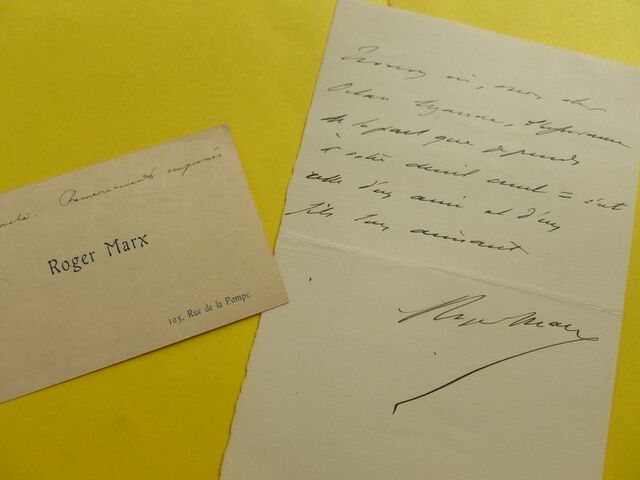 Remerciements exposés
Roger Marx
105, Rue de la Pompe
Trouvez ici, mon cher
Octave Uzanne, l'assurance
de la part que je prends
à votre deuil cruel = c'est
celle d'un ami et d'un
fils bien aimant
Roger Marx